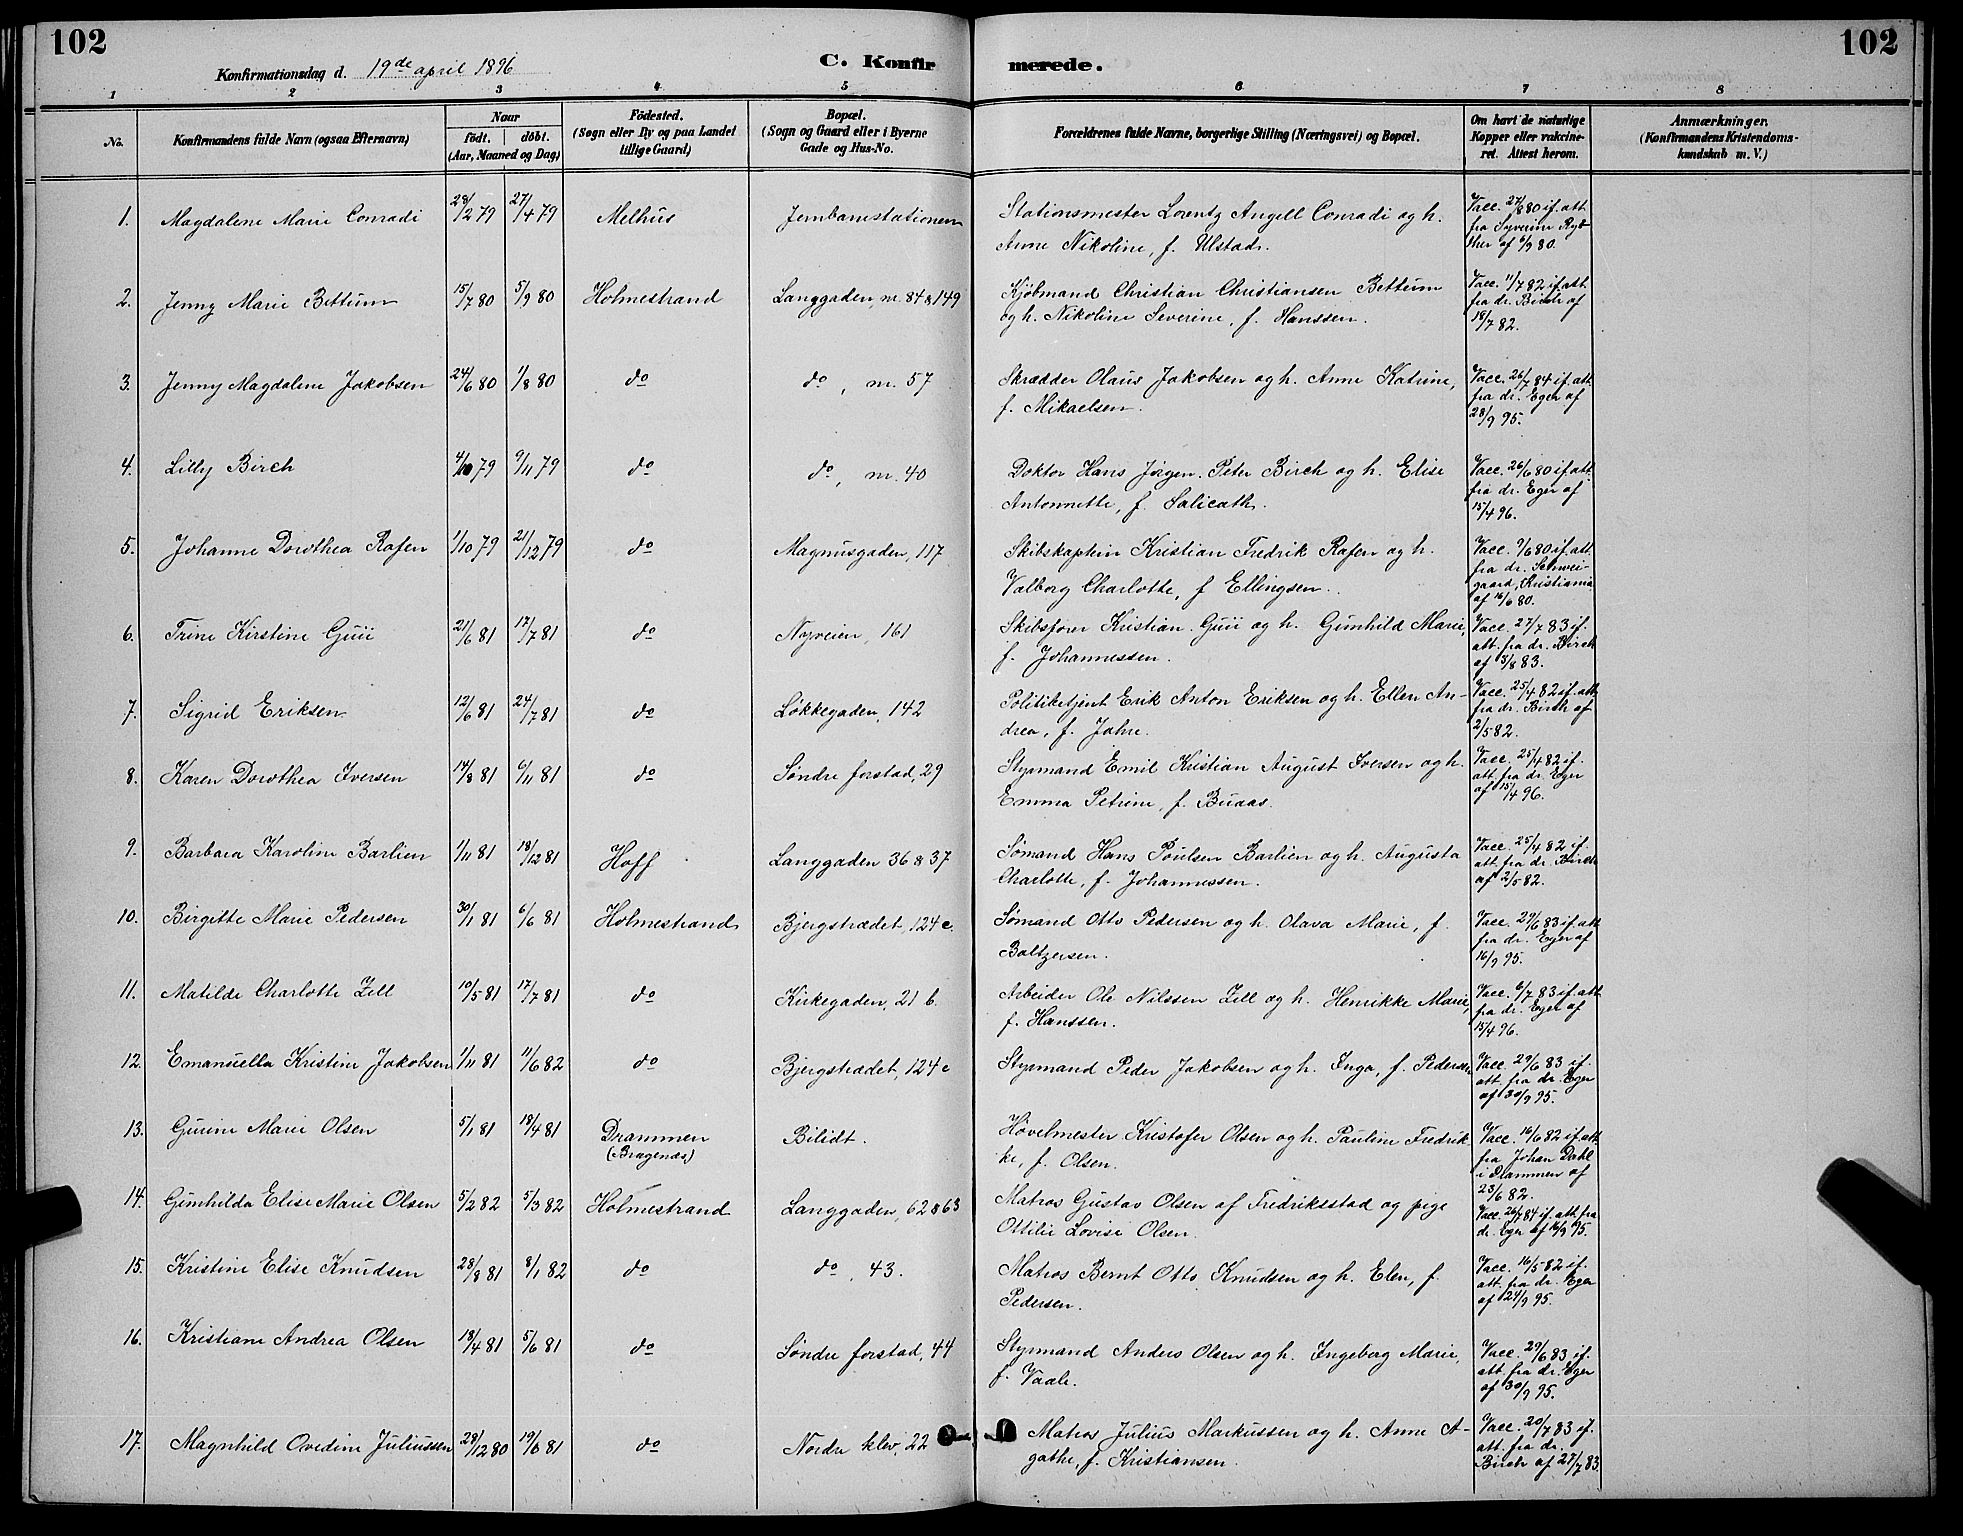 102
102
Konfirmationsdag d. 19de april 1896
C. Konfirmerede.
1 2 3 4 5 6 7 8
No.
Konfirmandens fulde Navn (ogsaa Efternavn)
Naar
født. døbt.
(Aar, Maaned og Dag)
Fødested.
(Sogn eller By og paa Landet
tillige Gaard)
Bopæl.
(Sogn og Gaard eller i Byerne
Gade og Hus-No.
Forældrenes fulde Navne, borgerlige Stilling (Næringsvei) og Bopæl.
Om havt de naturlige
Kopper eller vakcine-
ret. Attest herom.
Anmærkninger.
(Konfirmandens Kristendoms-
kundskab m. V.)
1. Magdalene Marie Conradi 28/2 79 27/4 79 Melhus Jernbanestationen Stationsmester Lorentz Angell Conradi og h. Vacc. 27/8 80 if. att.
Anne Nikoline, f. Ulstad. fra Syverine
af 6/9 80.
2. Jenny Marie Bettum 15/7 80 5/9 80 Holmestrand Langgaden, nr. 84 & 149 Kjøbmand Christian Christiansen Bettum Vacc. 11/7 82 if. att.
og h. Nikoline Severine, f. Hanssen. fra dr. Birch af
18/7 82.
3. Jenny Magdalene Jakobsen 24/6 80 1/8 80 do do, nr. 57 Skrædder Olaus Jakobsen og h. Anne Katrine, Vacc. 26/7 84 if. att.
f. Mikaelsen. fra dr. Eger af
28/9 95.
4. Lilly Birch 4/10 79 9/11 79 do do, nr. 40 Doktor Hans Jørgen Peter Birch og h. Elise Vacc. 26/6 80 if. att.
Antonnette, f. Salicath. fra dr. Eger af
15/4 96.
5. Johanne Dorothea Rafen 1/10 79 21/12 79 do Magnusgaden, 117 Skibskaptein Kristian Fredrik Rafen og h. Vacc. 9/6 80 if. att.
Valborg Charlotte, f. Ellingsen. fra dr. Schwei-
gaard, Kristiania
af 16/6 80.
6. Trine Kirstine Guii 21/6 81 17/7 81 do Nyveien, 161 Skibsfører Kristian Guii og h. Gunhild Marie, Vacc. 27/7 83 if.
f. Johannessen. att. fra dr. Birch
af 3/8 83.
7. Sigrid Eriksen 12/6 81 24/7 81 do Løkkegaden, 142 Politibetjent Erik Anton Eriksen og h. Ellen An- Vacc. 25/4 82 if. att.
drea, f. Jahre. fra dr. Birch af
2/5 82.
8. Karen Dorothea Iversen 14/8 81 6/11 81 do Søndre forstad, 29 Styrmand Emil Kristian August Iversen og h. Vacc. 25/4 82 if.
Emma Petrine, f. Buaas. att. fra dr. Eger
af 15/4 96.
9. Barbara Karoline Barlien 1/11 81 18/12 81 Hoff Langgaden 36 & 37 Sømand Hans Poulsen Barlien og h. Augusta Vacc. 25/4 82 if.
Charlotte, f. Johannessen. att. fra dr. Birch
af 2/5 82.
10. Birgitte Marie Pedersen 30/1 81 6/6 81 Holmestrand Bjergstrædet, 124 c. Sømand Otto Pedersen og h. Olava Marie, f. Vacc. 29/6 83 if. att.
Baltzersen. fra dr. Eger af
16/9 95.
11. Matilde Charlotte Zell 10/5 81 17/7 81 do Kirkegaden, 21 b. Arbeider Ole Nilssen Zell og h. Henrikke Marie, Vacc. 6/7 83 if. att.
f. Hanssen. fra dr. Eger af
15/4 96.
12. Emanuella Kristine Jakobsen 1/11 81 11/6 82 do Bjergstrædet, 124 c Styrmand Peder Jakobsen og h. Inga, f. Pedersen Vacc. 29/6 83 if.
att. fra dr. Eger
af 30/9 95.
13. Gurine Marie Olsen 5/1 81 18/4 81 Drammen Bilidt. Høvelmester Kristofer Olsen og h. Pauline Fredrik- Vacc. 16/6 82 if. att.
(Bragenæs) ke, f. Olsen. fra Johan Dahl
i Drammen af
23/6 82.
14. Gunhilda Elise Marie Olsen 5/2 82 5/3 82 Holmestrand Langgaden, 62 & 63 Matros Gustav Olsen af Fredriksstad og pige Vacc. 26/7 84 if. att. fra
Ottilie Lovise Olsen. dr. Eger af 16/9 95.
15. Kristine Elise Knudsen 28/8 81 8/1 82 do do, 43. Matros Bernt Otto Knudsen og h. Elen, f. Vacc. 16/5 82 if.
Pedersen. att. fra dr. Eger
af 24/9 95.
16. Kristiane Andrea Olsen 18/4 81 5/6 81 do Søndre forstad, 44 Styrmand Anders Olsen og h. Ingeborg Marie, Vacc. 29/6 83 if.
f. Vaale. att. fra dr. Eger
af 30/9 95.
17. Magnhild Ovedine Juliussen 28/12 80 19/6 81 do Nordre klev, 22 Matros Julius Markussen og h. Anne A- Vacc. 20/7 83 if.
gathe, f. Kristiansen. att. fra dr.
Birch af 27/7 83.